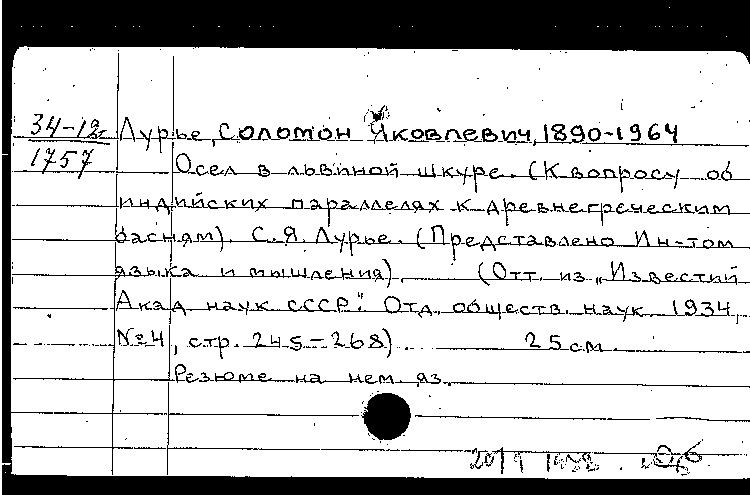 34-12
1757
Лурье, Соломон Яковлевич, 1890-1964
Осел в львиной шкуре. (К вопросу об
индийских параллелях к древнегреческим
басням). С.Я. Лурье. (Представлено Ин-том
языка и мышления). (Отт. из „Известий
Акад наук СССР". Отд. обществ. наук 1934,
№4, стр. 245-268). 25 см.
Резюме на нем. яз.